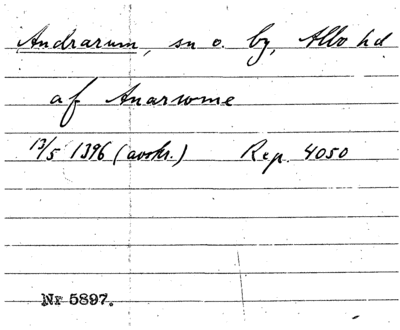 Andrarum, sn o. by, Albo hd
af Anarwme
13/5 1396 (avskr.) Rep. 4050
Nr 5897.